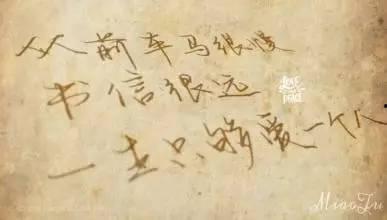 从前车马很慢
书信很远
一生只够爱一个人
LOVE
PEACE
MiaoJu